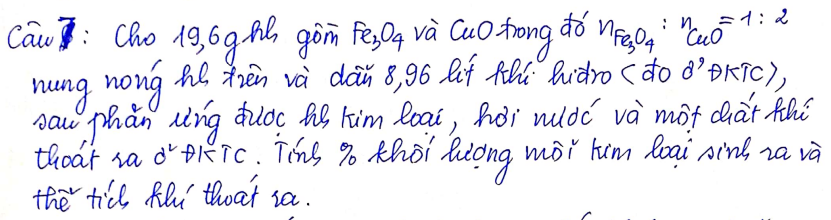 Câu 7: Cho 19,6g hh gồm Fe₃O₄ và CuO trong đó nFe₃O₄ : nCuO = 1 : 2
nung nóng hh trên và dẫn 8,96 lít khí hidro (đo ở ĐKTC),
sau phản ứng được hh kim loại, hơi nước và một chất khí
thoát ra ở ĐKTC. Tính % khối lượng mỗi kim loại sinh ra và
thể tích khí thoát ra.